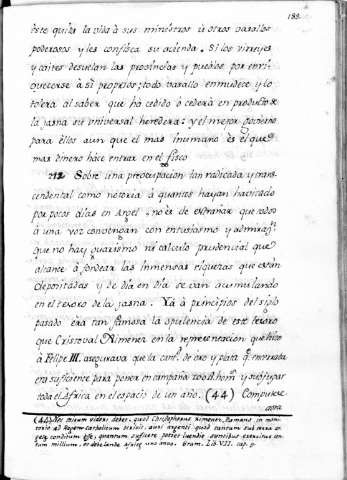 188.
éste quita la vida à sus ministros ù otros vasallos
poderosos y les confisca su acienda. Si los virreyes
y caites desuelan las provincias y pueblos por enri-
quecerse à sì proprios; todo vasallo enmudece y lo
tolera al saber que ha cedido ò cederà en producto de
la jasna su universal heredera: y el mejor govierno
para ellos aun que el mas inumano es el que
mas dinero hàce entrar en el fisco
212 Sobre una preocupacion tan radicada y trans-
cendental como notoria à quantos hayan havitado
por pocos dias en Argel, no es de estrañar que todos
à una voz convengan con entusiasmo y admiraⁿ.
que no hay guarismo ni calculo prudencial que
alcance à sondear las inmensas riquezas que estàn
depositadas y de dia en dia se van acumulando
en el tesoro de la jasna. Yà à principios del siglo
pasado era tan famosa la opulencia de este tesoro
que Cristoval Ximenez en la representacion que hizo
à Felipe III. asegurava que la cantᵈ. de oro y plata qᵉ.
era suficiente para poner en campaña 100 ℳ homˢ. y subyugar
toda el Africa en el espacio de un año. (44) Computese
aora
(44) Nec mirum videri debet, quod Christophorus Ximenez, Romanus, in moni-
torio ad Regem Catholicum scripsit, auri argenti quod tantum sub terra ar-
gely conditum esse, quantum sufficere potest levandis sumtibus exercitus cen-
tum millium, ad debellandam Africam uno anno. Gram. Lib. VII. cap.